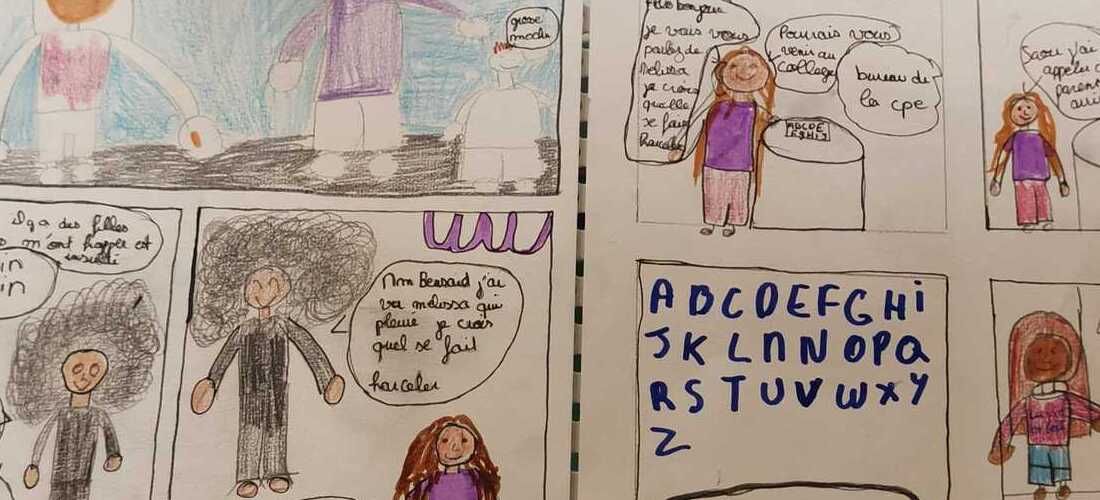 grosse
moche
Il y a des filles
m'ont happer est
insulté
in
in
Mm Bensaid j'ai
vu mélissa qui
pleure je crois
quel se fait
harceler
bonjour
je vais vous
parler de
Melissa
je crois
quelle
se fait
harceler
Pourais vous
venir au
collège
bureau de
la cpe
ABCDE
FGHIJ
j'ai
appeler
parent
ABCDEFGHi
JKLMNOPQ
RSTUVWXY
Z